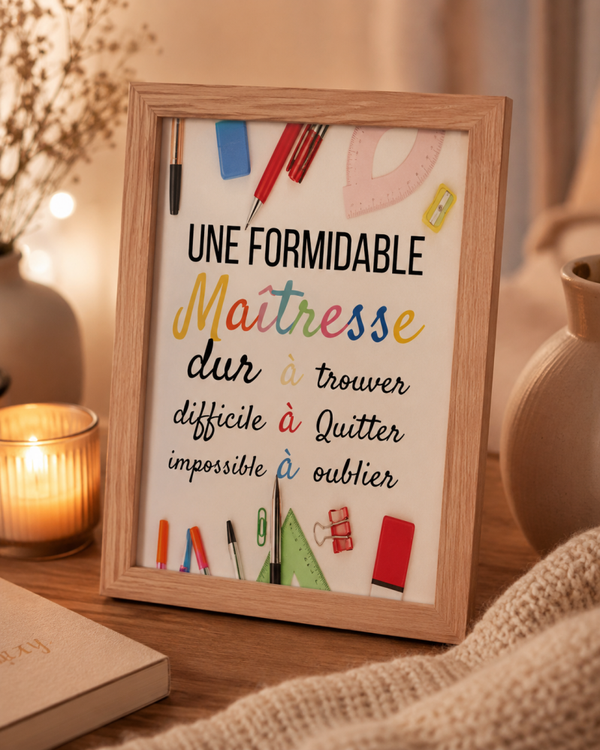 UNE FORMIDABLE
Maîtresse
dur à trouver
difficile à Quitter
impossible à oublier